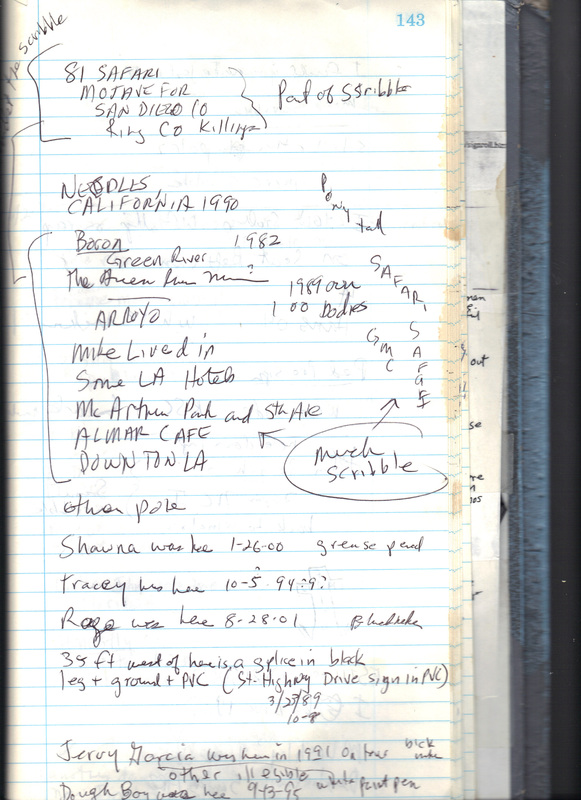 143
scribble
81 SAFARI
MOJAVE FOR
SAN DIEGO CO
Ring CO Killings
Part of Sscribble
NEEDLES,
CALIFORNIA 1990
Pony tail
Bacon 1982
Green River
The Green River
1989 over
100 bodies
ARROYO
SAFARI
GMC
SAFARI
Mike Lived in
Some LA Hotels
McArthur Park and 5th Ave
ALMAR CAFE
DOWNTON LA
much
scribble
other pole
Shawna was here 1-26-00 grease pencil
Tracey was here 10-5 94?9?
was here 8-28-01
35 ft west of here is a splice in black
leg + ground + PVC (St. Highway Drive sign in PVC)
3/23/89
10-8
Jerry Garcia was here in 1991 on tour
other illegible
Dough Boy was here 9-13-95 white paint pen
out